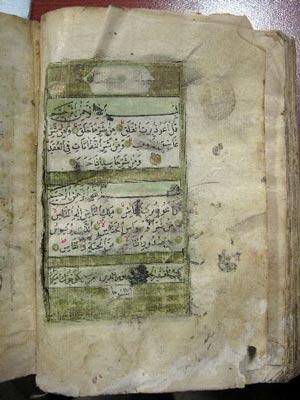 بسم الله الرحمن الرحيم
قل اعوذ برب الفلق من شر ما خلق ومن شر
غاسق اذا وقب ومن شر النفاثات في العقد
ومن شر حاسد اذا حسد
بسم الله الرحمن الرحيم
قل اعوذ برب الناس ملك الناس اله الناس
من شر الوسواس الخناس الذي يوسوس
في صدور الناس من الجنة والناس